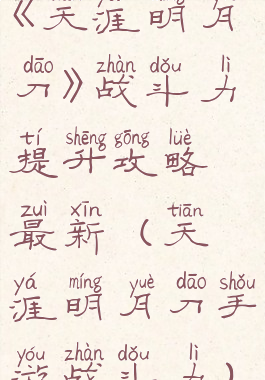 《天涯明月
dāo zhàn dǒu lì
刀》战斗力
tí shēng gōng lüè
提升攻略
zuì xīn tiān
最新（天
yá míng yuè dāo shǒu
涯明月刀手
yóu zhàn dǒu lì
游战斗力）